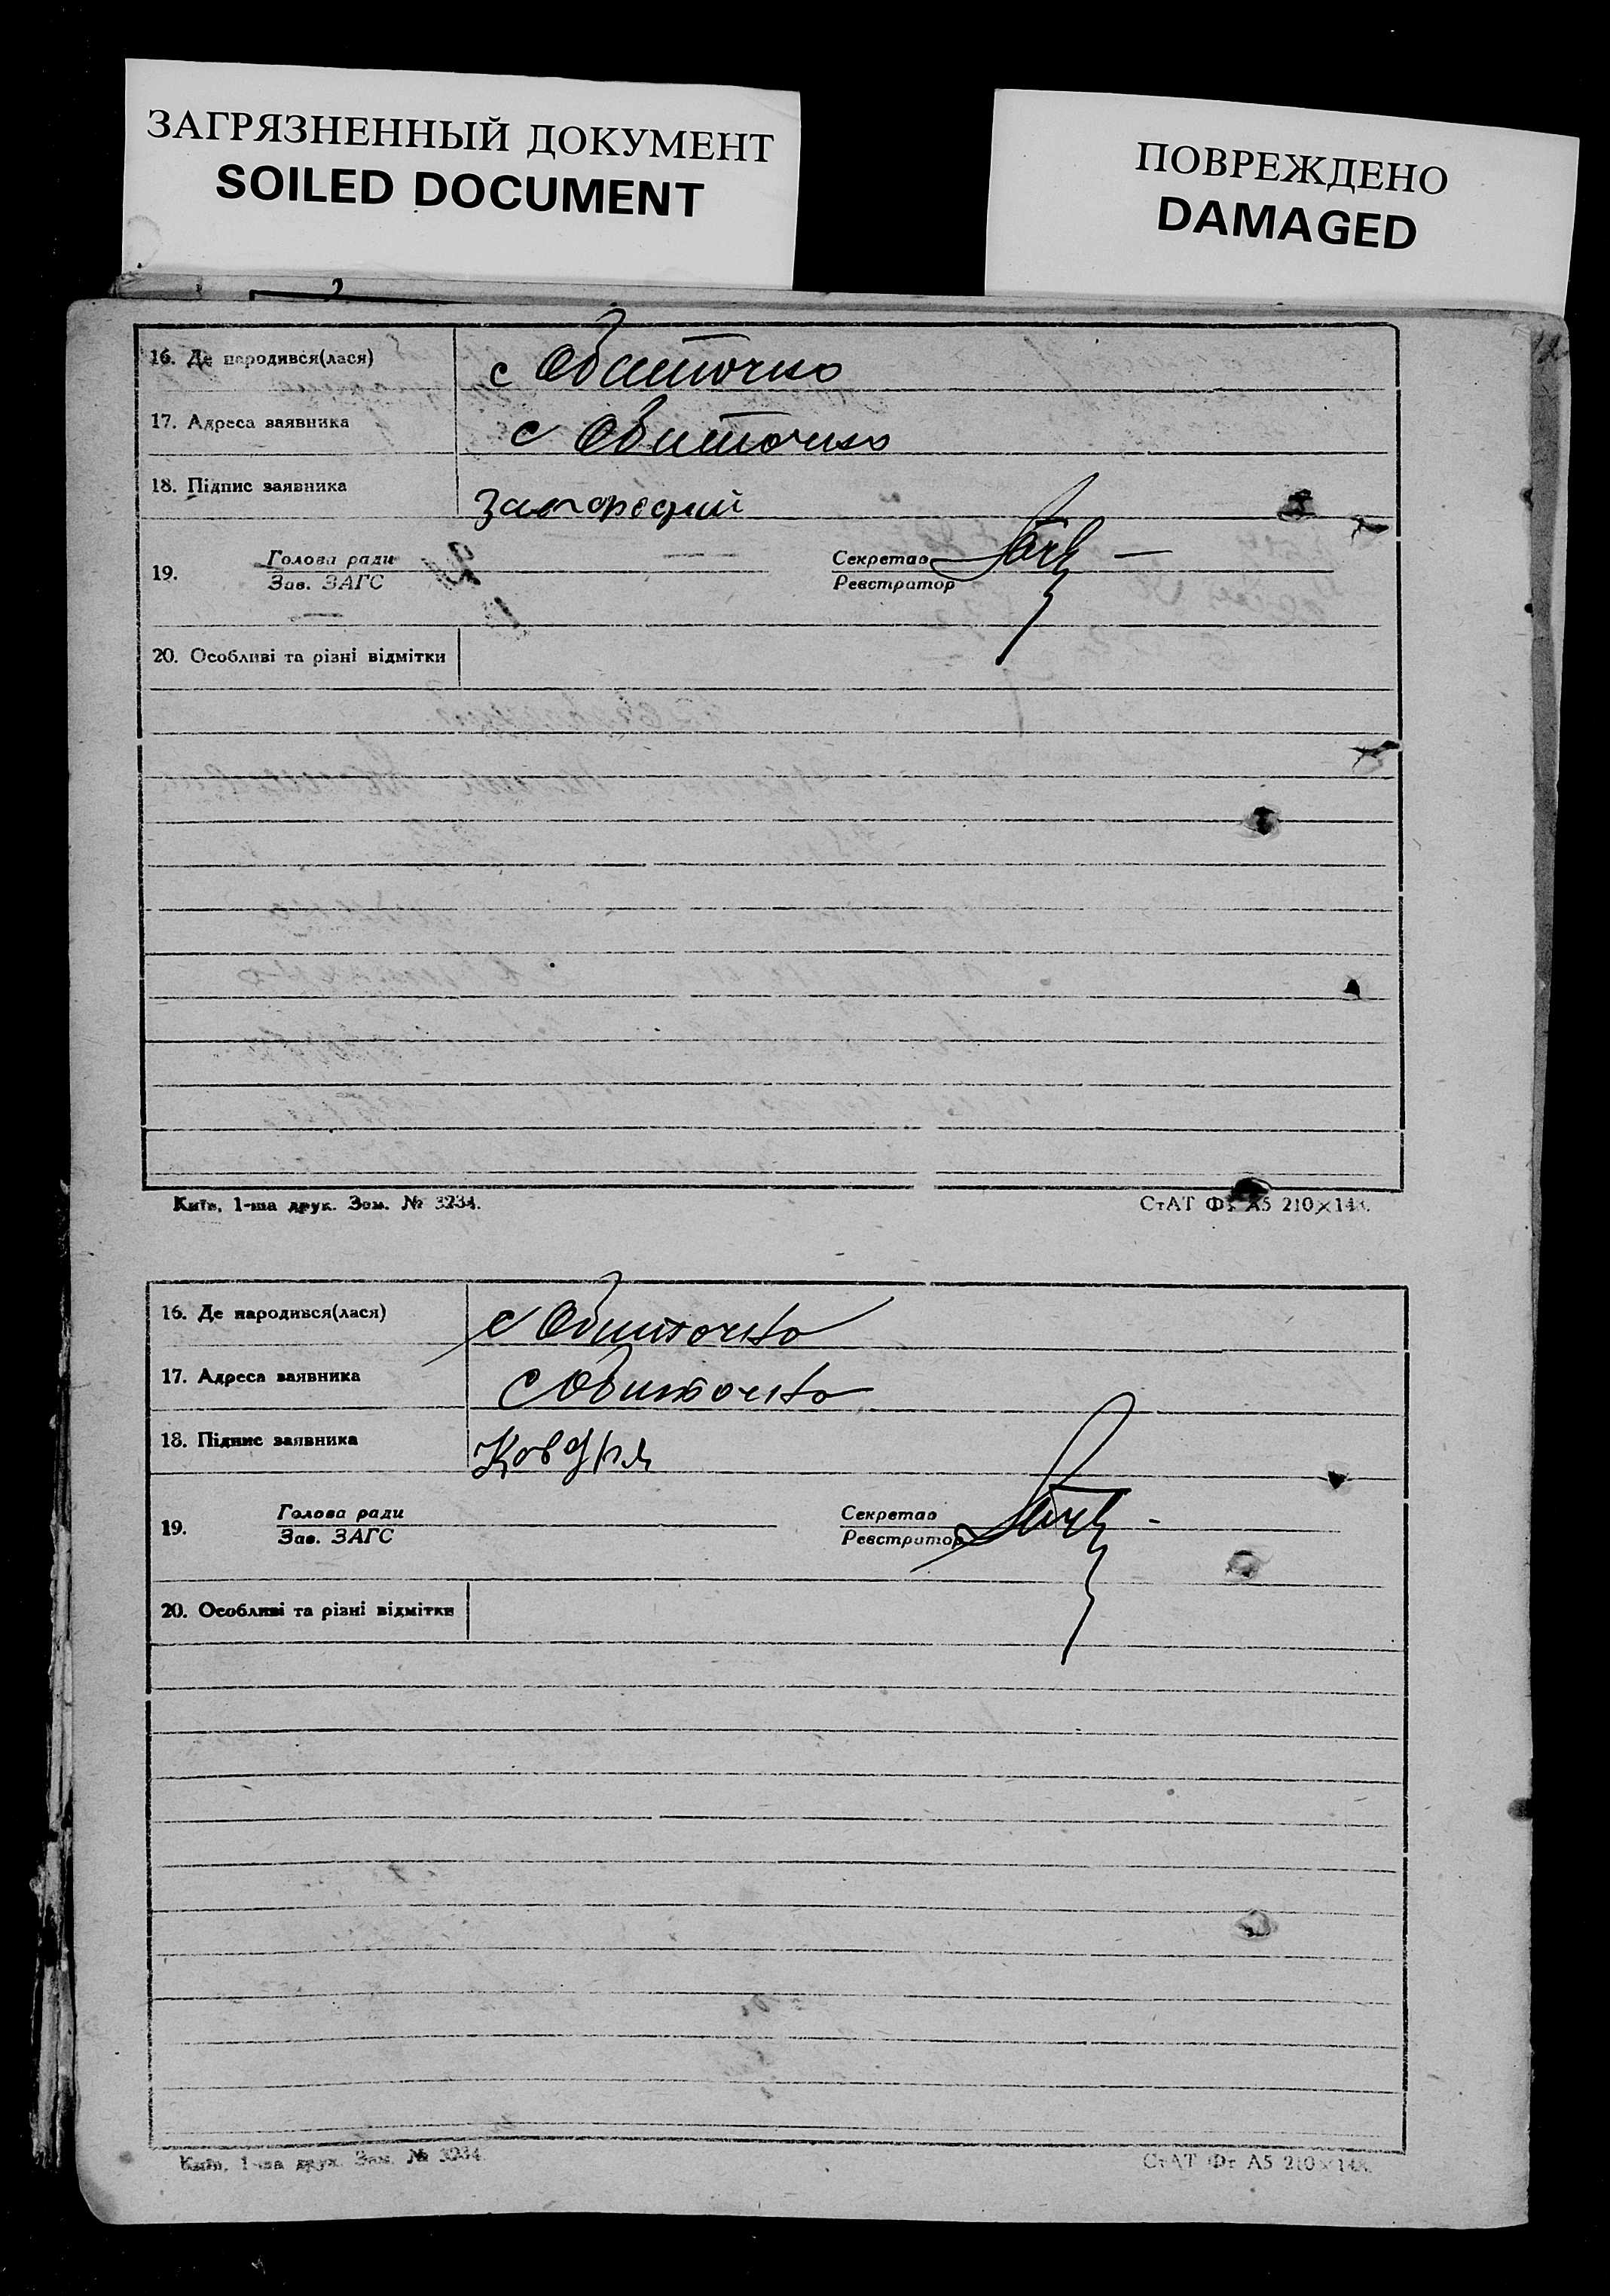 ЗАГРЯЗНЕННЫЙ ДОКУМЕНТ
SOILED DOCUMENT
ПОВРЕЖДЕНО
DAMAGED
16. Де народився(лася) с Обиточно
17. Адреса заявника с Обиточно
18. Підпис заявника Загородний
19. Голова ради Секретар
Зав. ЗАГС Реєстратор
20. Особливі та різні відмітки
Київ, 1-ша друк. Зам. № 3234. СтАТ Фт А5 210×148.
16. Де народився(лася) с Обиточно
17. Адреса заявника с Обиточно
18. Підпис заявника Ковдря
19. Голова ради Секретар
Зав. ЗАГС Реєстратор
20. Особливі та різні відмітки
Київ, 1-ша друк. Зам. № 3234. СтАТ Фт А5 210×148.